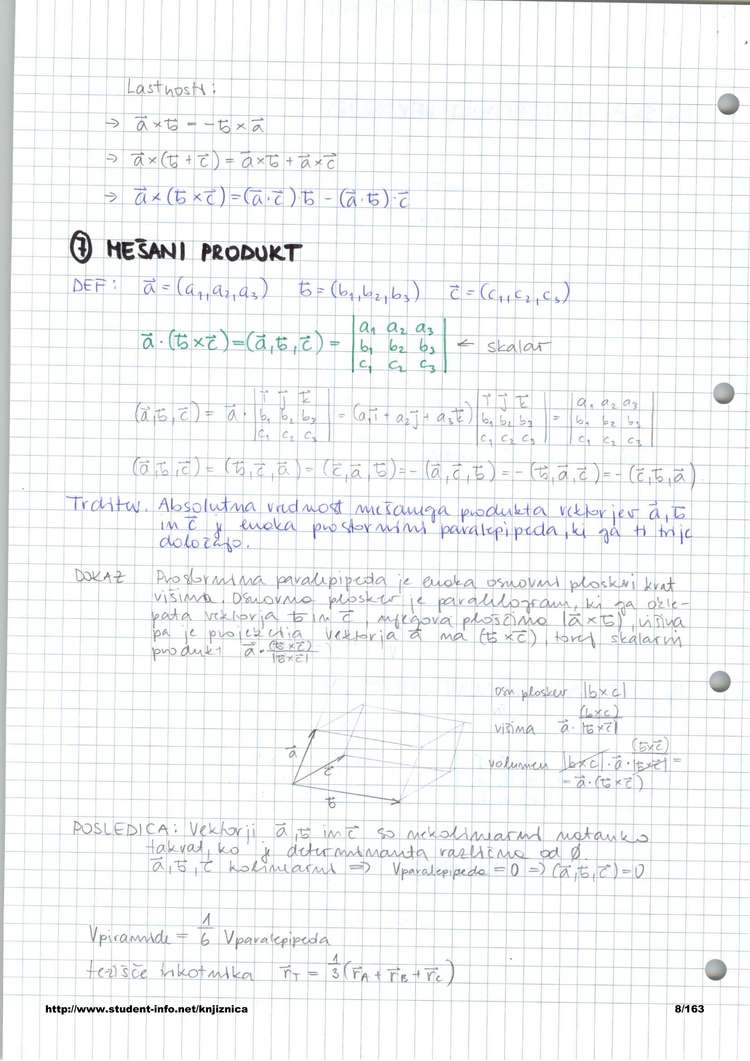 Lastnosti:
→ a⃗ × b⃗ = -b⃗ × a⃗
→ a⃗ × (b⃗ + c⃗) = a⃗ × b⃗ + a⃗ × c⃗
→ a⃗ × (b⃗ × c⃗) = (a⃗ · c⃗) b⃗ - (a⃗ · b⃗) · c⃗
⑦ MEŠANI PRODUKT
DEF: a⃗ = (a₁, a₂, a₃) b⃗ = (b₁, b₂, b₃) c⃗ = (c₁, c₂, c₃)
a⃗ · (b⃗ × c⃗) = (a⃗, b⃗, c⃗) = |a₁ a₂ a₃; b₁ b₂ b₃; c₁ c₂ c₃| ← skalar
(a⃗, b⃗, c⃗) = a⃗ · |i⃗ j⃗ k⃗; b₁ b₂ b₃; c₁ c₂ c₃| = (a₁i⃗ + a₂j⃗ + a₃k⃗) |i⃗ j⃗ k⃗; b₁ b₂ b₃; c₁ c₂ c₃| = |a₁ a₂ a₃; b₁ b₂ b₃; c₁ c₂ c₃|
(a⃗, b⃗, c⃗) = (b⃗, c⃗, a⃗) = (c⃗, a⃗, b⃗) = -(a⃗, c⃗, b⃗) = -(b⃗, a⃗, c⃗) = -(c⃗, b⃗, a⃗)
Trditev. Absolutna vrednost mešanega produkta vektorjev a⃗, b⃗
in c⃗ je enaka prostornini paralepipeda, ki ga ti trije
določajo.
DOKAZ Prostornina paralepipeda je enaka osnovni ploskvi krat
višina. Osnovna ploskev je paralelogram, ki ga okle-
pata vektorja b⃗ in c⃗, njegova ploščina |a⃗ × b⃗|, višina
pa je projekcija vektorja a⃗ na (b⃗ × c⃗), torej skalarni
produkt a⃗ · (b⃗ × c⃗)/|b⃗ × c⃗|
osn ploskev |b × c|
višina a⃗ · (b × c)/|b⃗ × c⃗|
volumen |b × c| · a⃗ · (b⃗ × c⃗)/|b⃗ × c⃗| =
= a⃗ · (b⃗ × c⃗)
a⃗
c⃗
b⃗
POSLEDICA: Vektorji a⃗, b⃗ in c⃗ so nekolinearni natanko
takrat, ko je determinanta različna od 0.
a⃗, b⃗, c⃗ kolinearni ⇒ Vparalepipeda = 0 ⇒ (a⃗, b⃗, c⃗) = 0
Vpiramide = 1/6 Vparalepipeda
težišče trikotnika r⃗T = 1/3 (r⃗A + r⃗B + r⃗C)
http://www.student-info.net/knjiznica 8/163